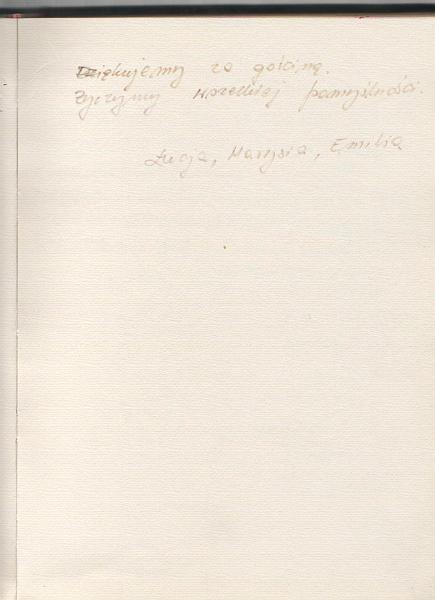 Dziękujemy za gościnę.
Życzymy wszelkiej pomyślności.
Łucja, Marysia, Emilia